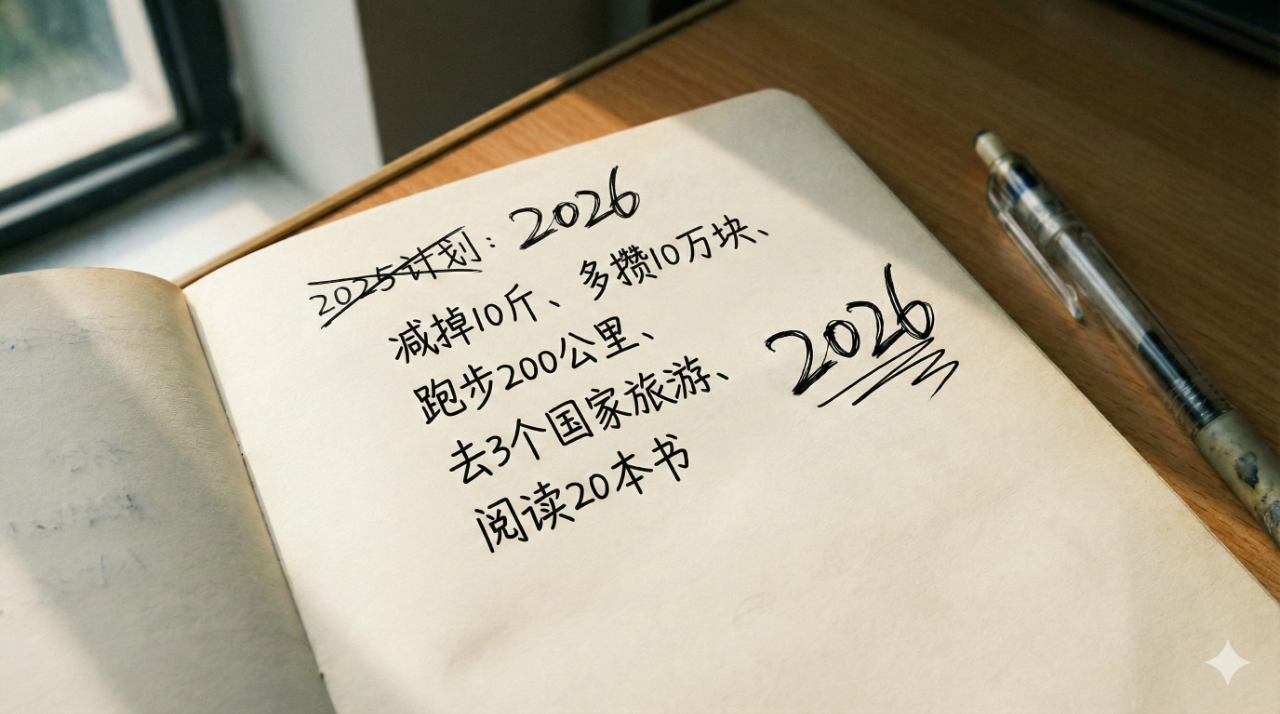 2025计划：2026
减掉10斤、多攒10万块、
跑步200公里、
去3个国家旅游、
阅读20本书
2026